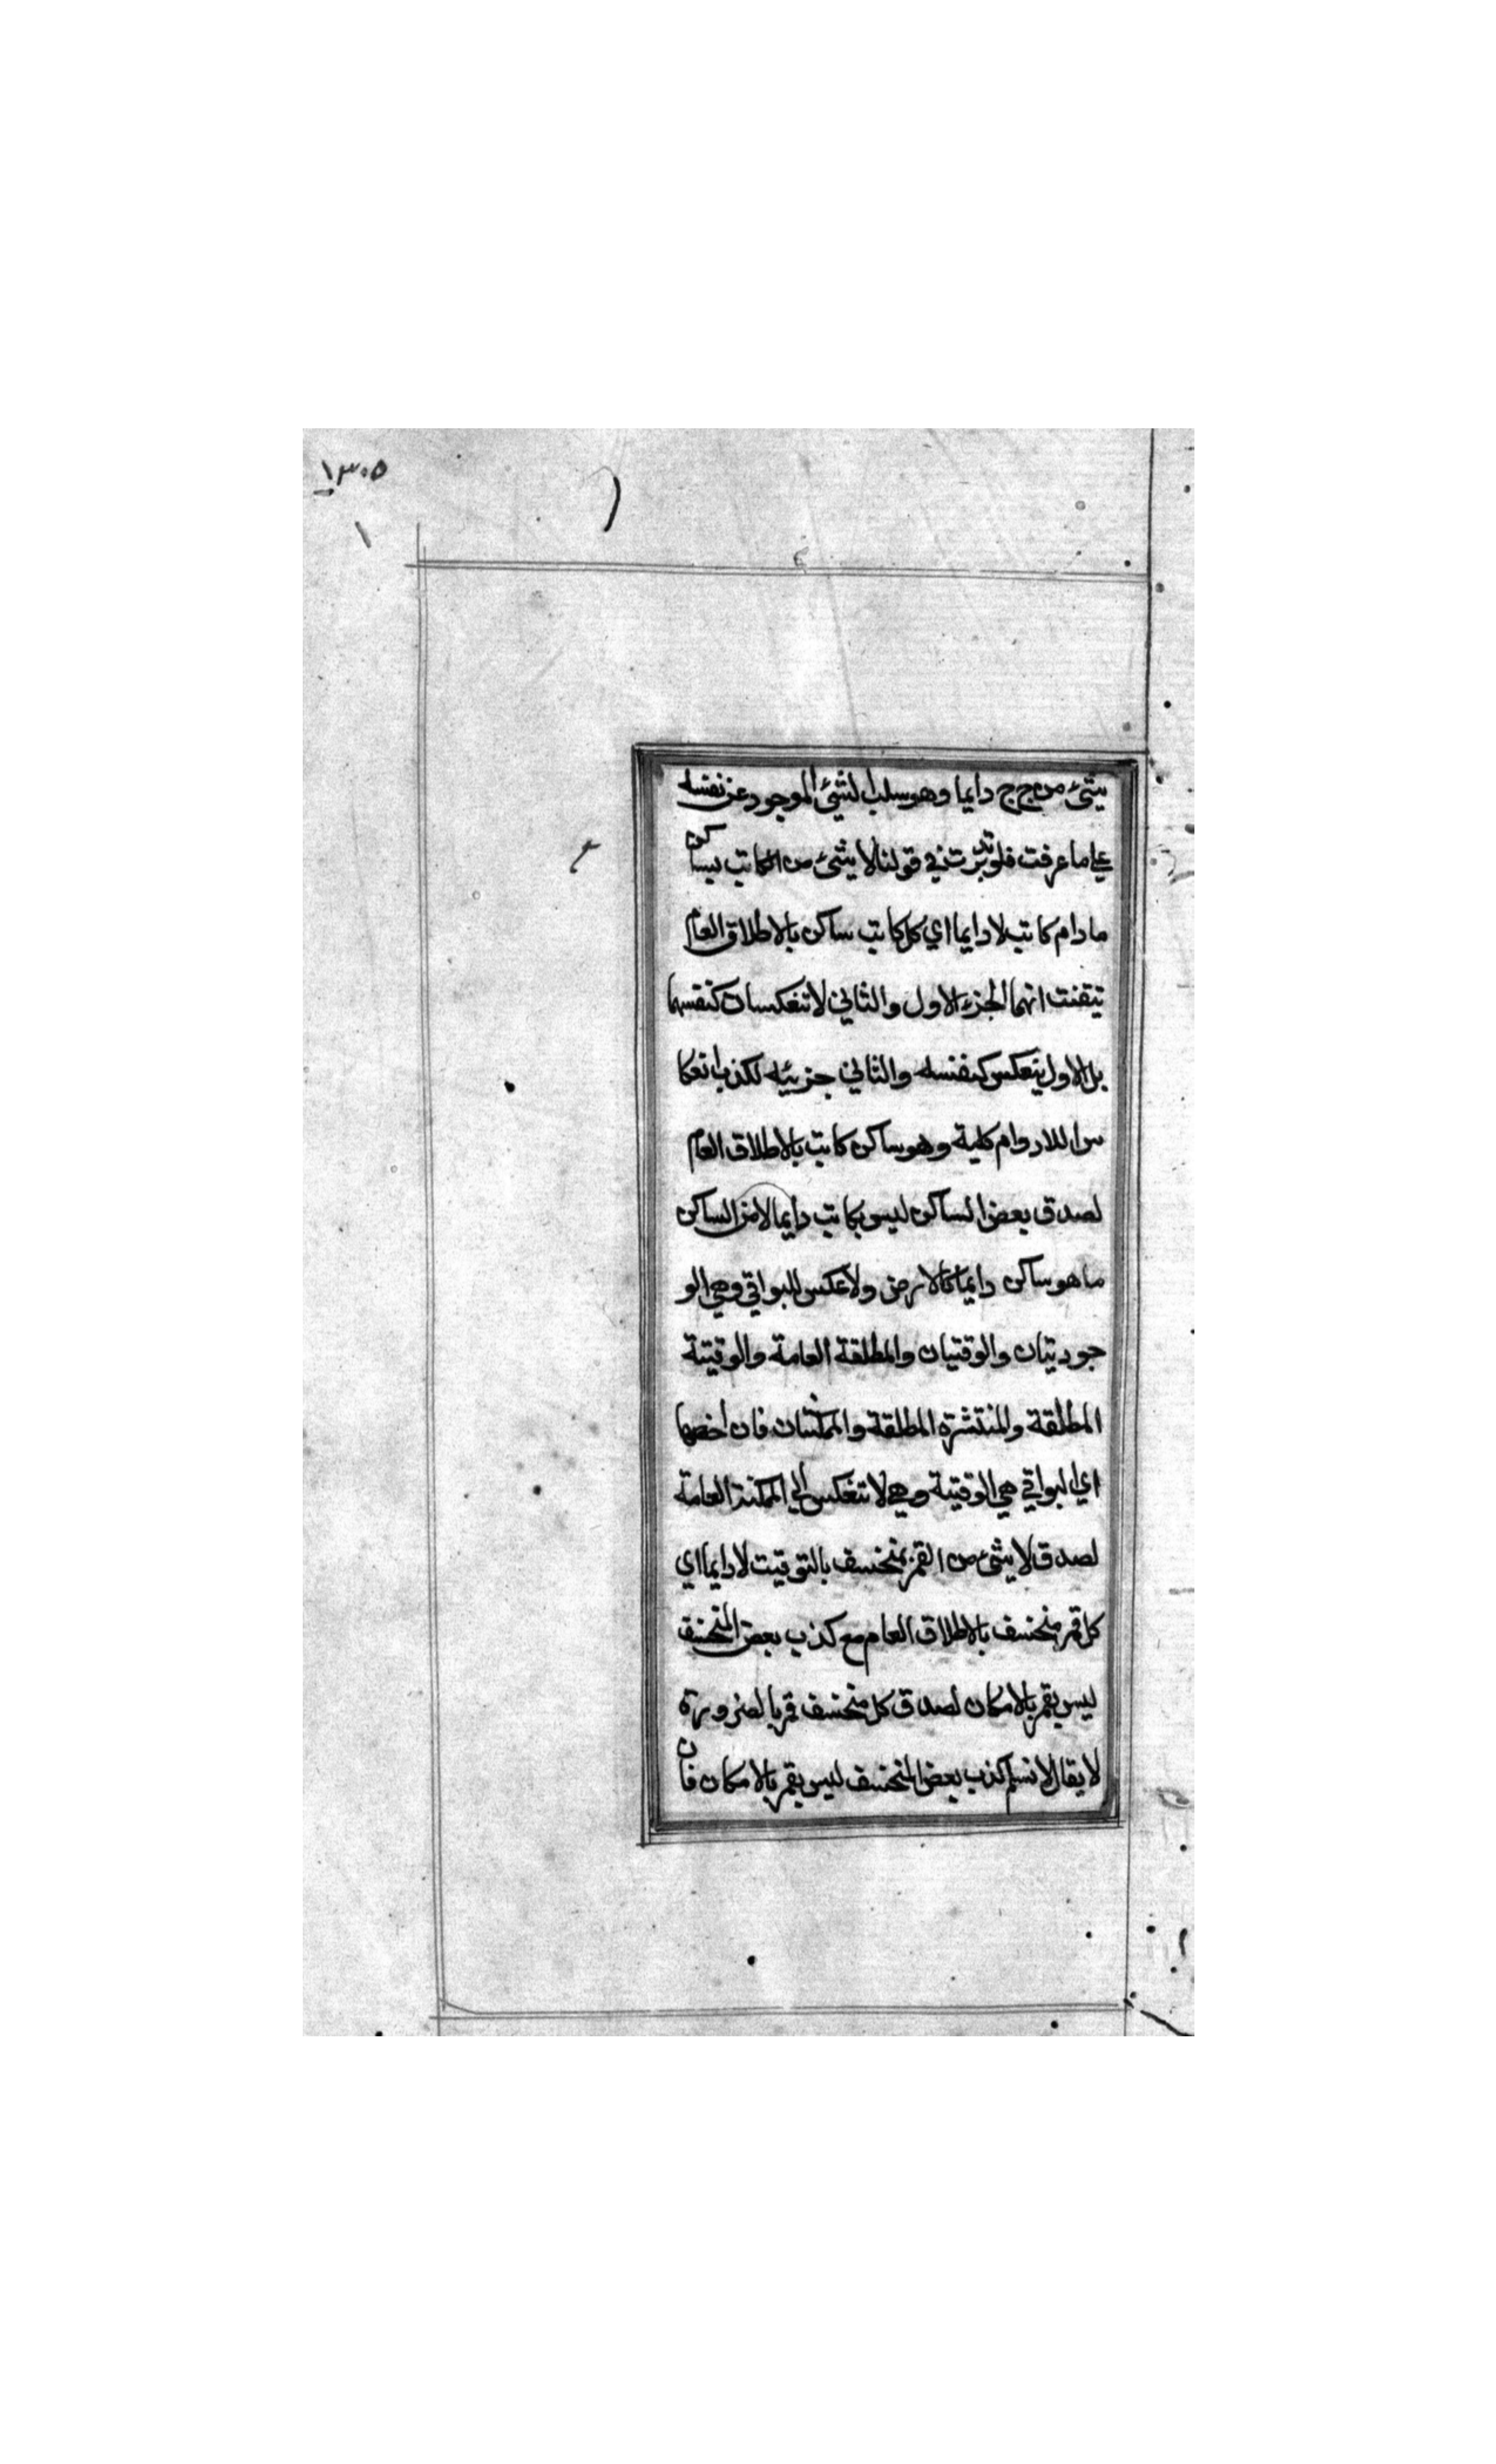 ١٣٠٥
١
شئ من ج ج دايما وهو سلب الشئ الموجود عن نفسه
علي ما عرفت فلو تدبرت في قولنا لا شئ من الكاتب بساكن
ما دام كاتب لا دايما اي كل كاتب ساكن بالاطلاق العام
تيقنت انهما الجزء الاول والثاني لا تنعكسان كنفسهما
بل الاول ينعكس كنفسه والثاني جزئيه لكذب انعكا
س اللادوام كلية وهو ساكن كاتب بالاطلاق العام
لصدق بعض الساكن ليس بكاتب دايما لا من الساكن
ما هو ساكن دايما كالارض ولا عكس للبواقي وهي الو
جوديتان والوقتيان والمطلقة العامة والوقتية
المطلقة والمنتشره المطلقة والممكنتان فان اخصها
اي البواقي هي الوقتية وهي لا تنعكس الي الممكنة العامة
لصدق لا شئ من القمر بمنخسف بالتوقيت لا دايما اي
كل قمر منخسف بالاطلاق العام مع كذب بعض المنخسف
ليس بقمر بالامكان لصدق كل منخسف قمر بالضرورة
لا يقال لا نسلم كذب بعض المنخسف ليس بقمر بالامكان فان